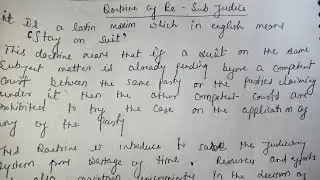 Doctrine of Re - Sub Judice
it is a latin maxim which in english means
"Stay on suit"
This doctrine means that if a suit on the same
Subject matter is already pending before a competent
Court between the same party or the parties claiming
under it then the other competent courts are
prohibited to try the case on the application of
any of the party
This Doctrine is introduce to save the Judiciary
System from wastage of time, Resources and efforts
also maintain in the decision of